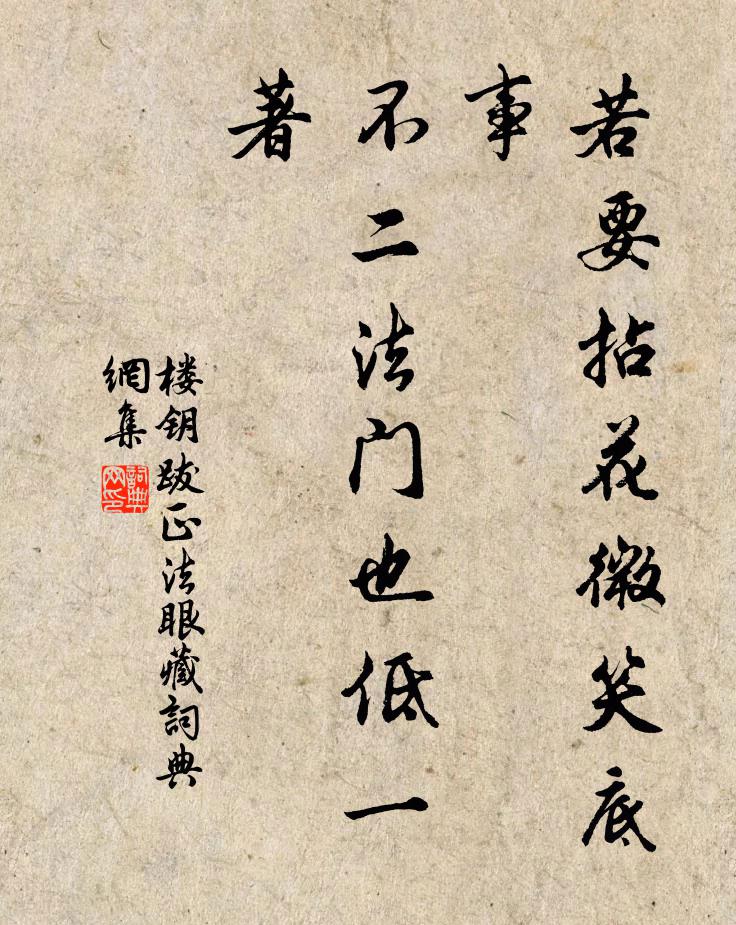 若要拈花微笑底
事
不二法门也低一
著
楼钥跋正法眼藏詞典
網集
詞典
网印